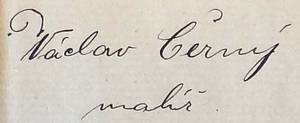 Václav Černý
malíř.